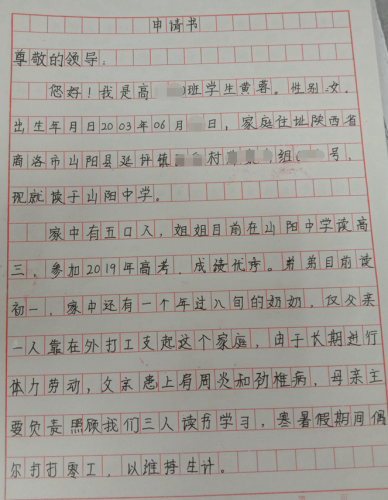 申请书
尊敬的领导:
您好!我是高班学生黄蓉。性别:女.
出生年月日2003年06月日,家庭住址陕西省
商洛市山阳县延坪镇村组号,
现就读于山阳中学。
家中有五口人,姐姐目前在山阳中学读高
三,参加2019年高考,成绩优秀。弟弟目前读
初一,家中还有一个年过八旬的奶奶,仅父亲
一人靠在外打工支起这个家庭,由于长期进行
体力劳动,父亲患上肩周炎和劲椎病,母亲主
要负责照顾我们三人读书学习,寒暑假期间偶
尔打打零工,以维持生计。